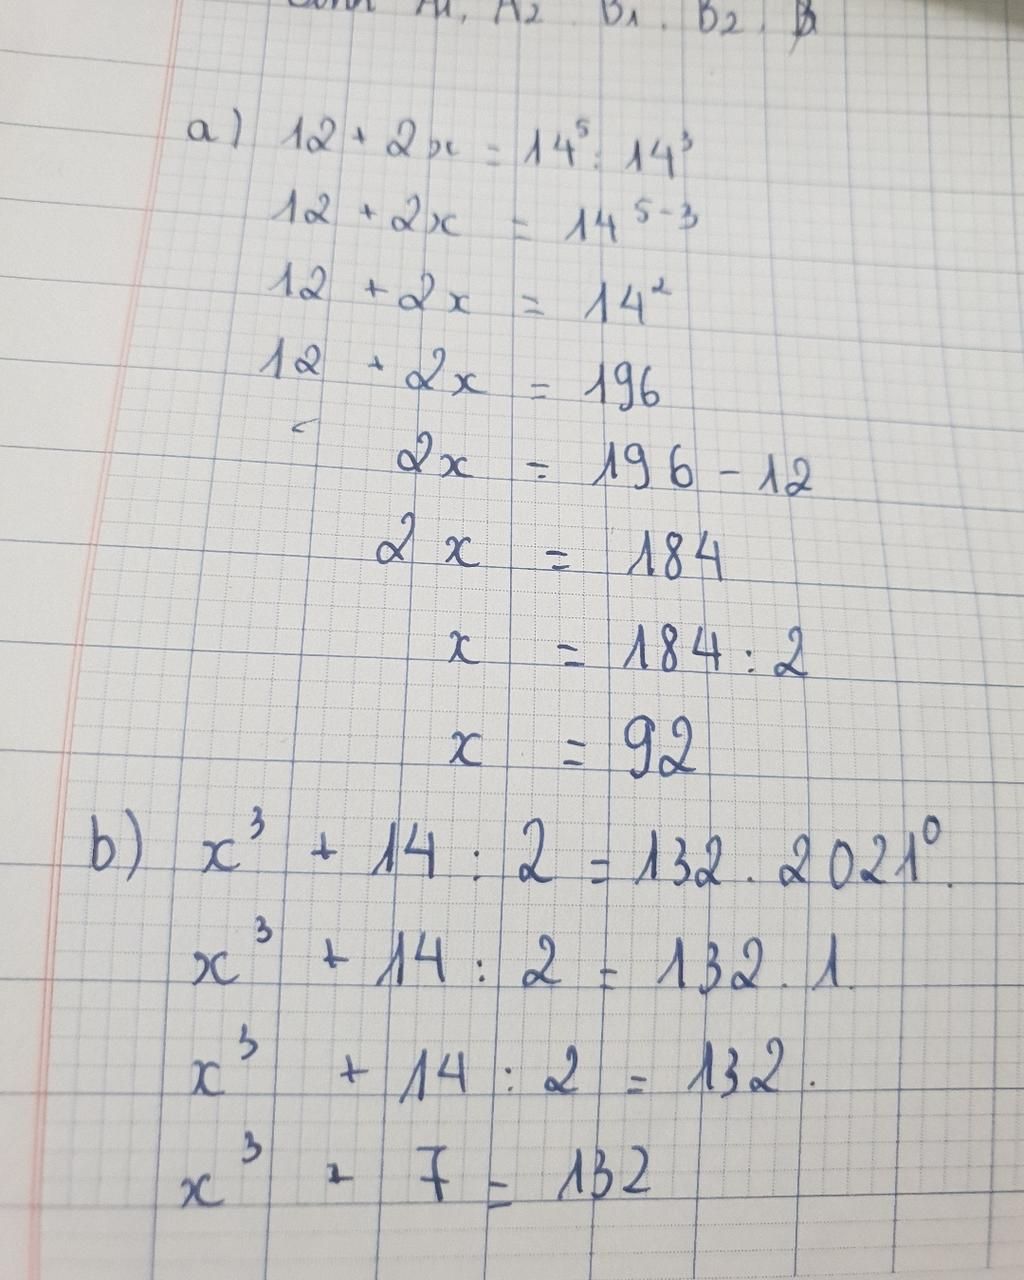 A1, A2. B1. B2.
a) 12 + 2x = 14⁵ : 14³
12 + 2x = 14⁵⁻³
12 + 2x = 14²
12 + 2x = 196
2x = 196 - 12
2x = 184
x = 184 : 2
x = 92
b) x³ + 14 : 2 = 132 . 2021⁰.
x³ + 14 : 2 = 132 . 1.
x³ + 14 : 2 = 132.
x³ + 7 = 132